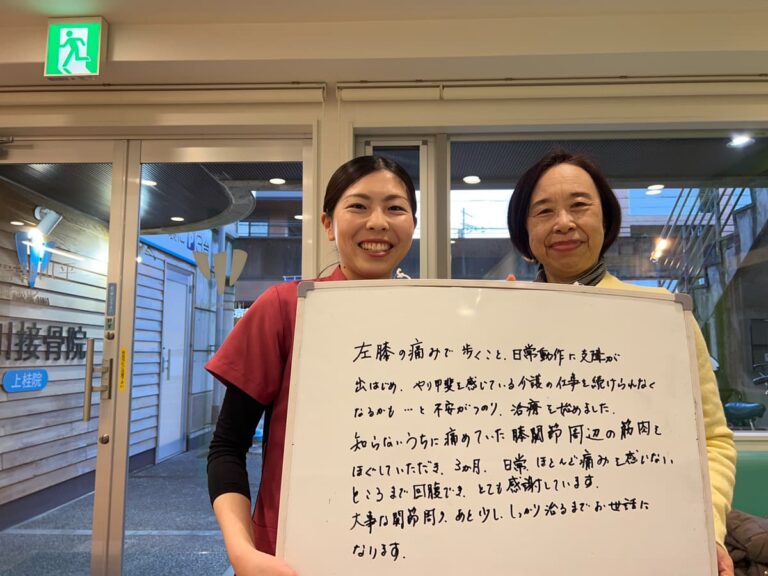 川接骨院
上桂院
左膝の痛みで歩くこと、日常動作に支障が
出はじめ、やり甲斐を感じている介護の仕事を続けられなく
なるかも…と不安がつのり、治療を始めました。
知らないうちに痛めていた膝関節周辺の筋肉を
ほぐしていただき、3か月、日常、ほとんど痛みを感じない
ところまで回腹でき、とても感謝しています。
大事な関節周り、あと少し、しっかり治るまでお世話に
なります。